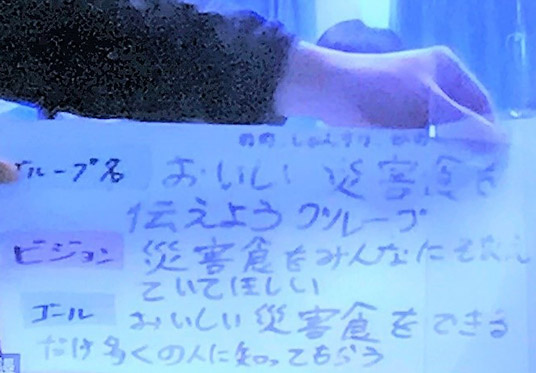 グループ名 おいしい災害食を
伝えようグループ
ビジョン 災害食をみんなにそなえ
ていてほしい
ゴール おいしい災害食をできる
だけ多くの人に知ってもらう